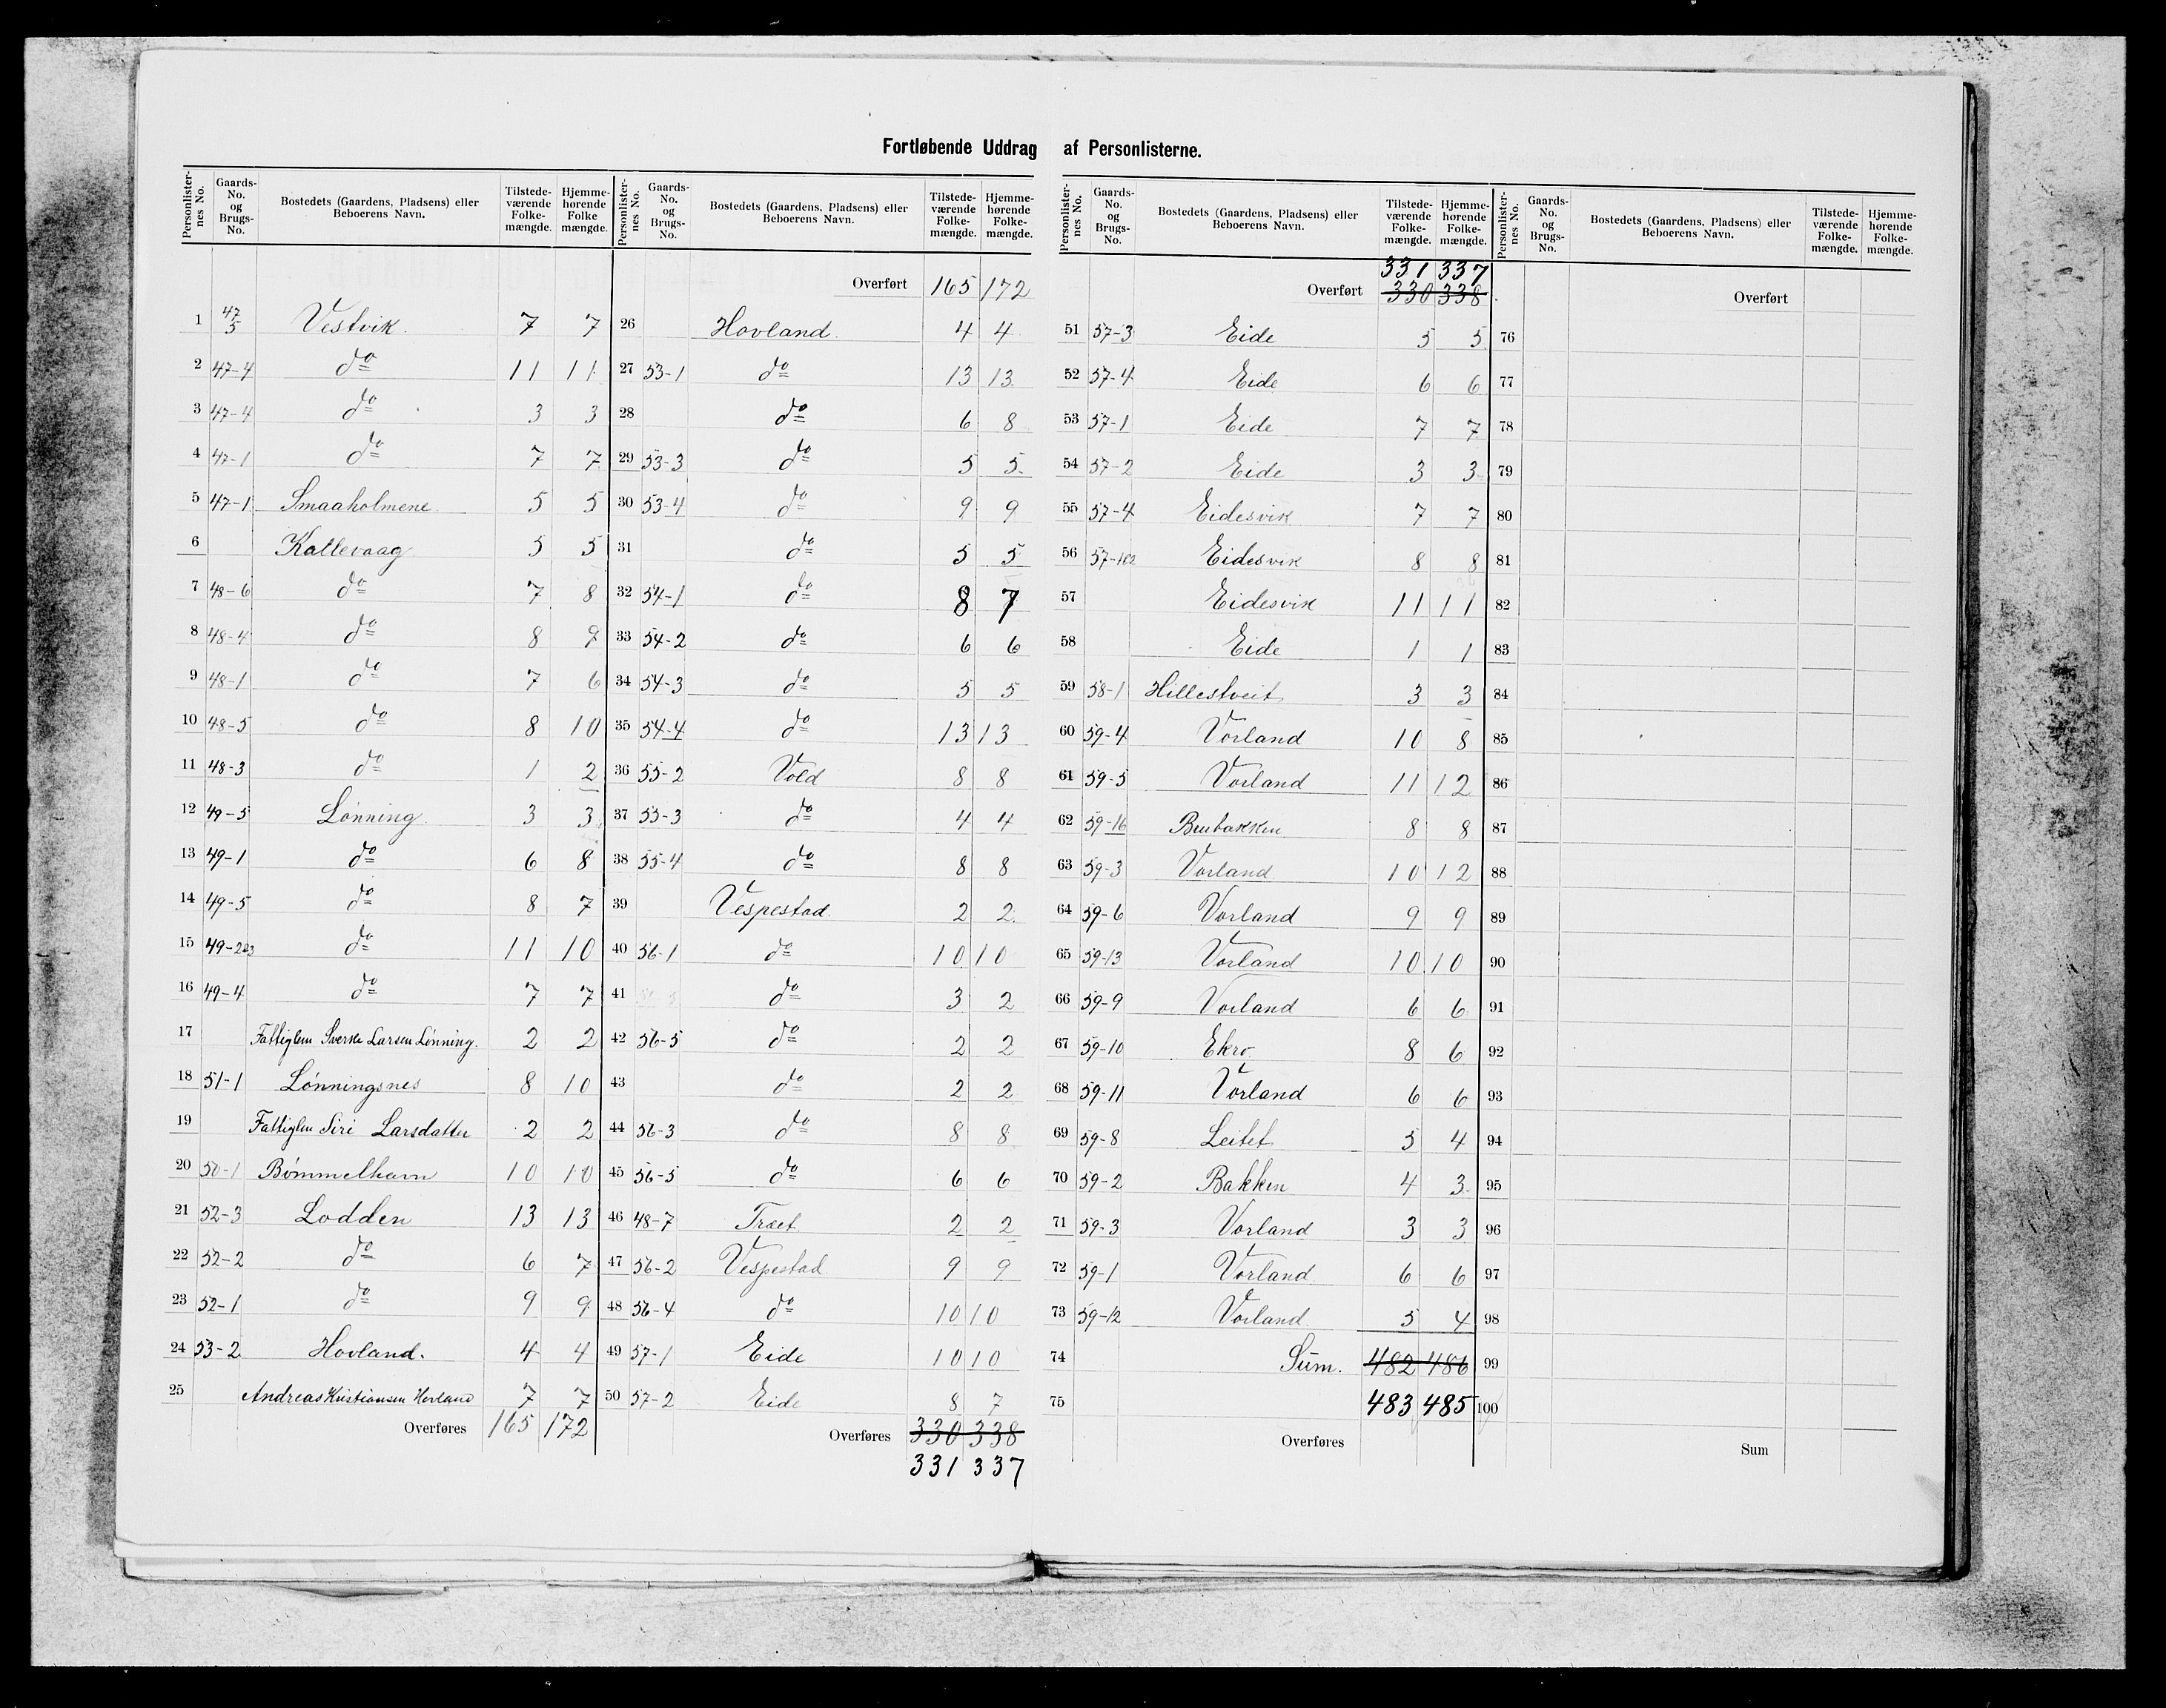 Fortløbende Uddrag af Personlisterne.
Personlisternes No. Gaards-No. og Brugs-No. Bostedets (Gaardens, Pladsens) eller Beboerens Navn. Tilstedeværende Folkemængde. Hjemmehørende Folkemængde.
1 47 5 Vestvik 7 7
2 47-4 do 11 11
3 47-4 do 3 3
4 47-1 do 7 7
5 47-1 Smaaholmene 5 5
6 Kallevaag 5 5
7 48-6 do 7 8
8 48-4 do 8 9
9 48-1 do 7 6
10 48-5 do 8 10
11 48-3 do 1 2
12 49-5 Lønning 3 3
13 49-1 do 6 8
14 49-5 do 8 7
15 49-2&3 do 11 10
16 49-4 do 7 7
17 Fattiglem Sverke Larsen Lønning. 2 2
18 51-1 Lønningsnes 8 10
19 Fattiglem Siri Larsdatter 2 2
20 50-1 Bømmelhavn 10 10
21 52-3 Lodden 13 13
22 52-2 do 6 7
23 52-1 do 9 9
24 53-2 Hovland. 4 4
25 Andreas Kristiansen Hovland 7 7
Overføres 165 172
Personlisternes No. Gaards-No. og Brugs-No. Bostedets (Gaardens, Pladsens) eller Beboerens Navn. Tilstedeværende Folkemængde. Hjemmehørende Folkemængde.
Overført 165 172
26 Hovland. 4 4
27 53-1 do 13 13
28 do 6 8
29 53-3 do 5 5
30 53-4 do 9 9
31 do 5 5
32 54-1 do 8 7
33 54-2 do 6 6
34 54-3 do 5 5
35 54-4 do 13 13
36 55-2 Vold 8 8
37 55-3 do 4 4
38 55-4 do 8 8
39 Vespestad 2 2
40 56-1 do 10 10
41 do 3 2
42 56-5 do 2 2
43 do 2 2
44 56-3 do 8 8
45 56-5 do 6 6
46 48-7 Træet 2 2
47 56-2 Vespestad 9 9
48 56-4 do 10 10
49 57-1 Eide 10 10
50 57-2 Eide 8 7
Overføres 330 338
331 337
Personlisternes No. Gaards-No. og Brugs-No. Bostedets (Gaardens, Pladsens) eller Beboerens Navn. Tilstedeværende Folkemængde. Hjemmehørende Folkemængde.
331 337
Overført 330 338
51 57-3 Eide 5 5
52 57-4 Eide 6 6
53 57-1 Eide 7 7
54 57-2 Eide 3 3
55 57-4 Eidesvik 7 7
56 57-1&2 Eidesvik 8 8
57 Eidesvik 11 11
58 Eide 1 1
59 58-1 Hillestveit 3 3
60 59-4 Vorland 10 8
61 59-5 Vorland 11 12
62 59-16 Brubakken 8 8
63 59-3 Vorland 10 12
64 59-6 Vorland 9 9
65 59-13 Vorland 10 10
66 59-9 Vorland 6 6
67 59-10 Ekro 8 6
68 59-11 Vorland 6 6
69 59-8 Leitet 5 4
70 59-2 Bakken 4 3
71 59-3 Vorland 3 3
72 59-1 Vorland 6 6
73 59-12 Vorland 5 4
74 Sum. 482 486
75 483 485
Overføres
Personlisternes No. Gaards-No. og Brugs-No. Bostedets (Gaardens, Pladsens) eller Beboerens Navn. Tilstedeværende Folkemængde. Hjemmehørende Folkemængde.
Overført
76
77
78
79
80
81
82
83
84
85
86
87
88
89
90
91
92
93
94
95
96
97
98
99
100
Sum